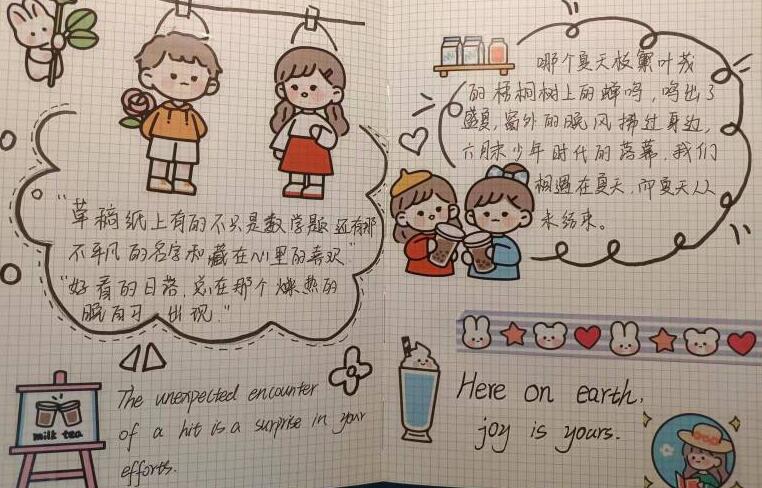 "草稿纸上有的不只是数学题 还有那
不平凡的名字和藏在心里的喜欢"
"好看的日落，总在那个燥热的
晚自习 出现."
milk tea
The unexpected encounter
of a hit is a surprise in your
efforts.
那个夏天枝繁叶茂
的梧桐树上的蝉鸣，鸣出了
盛夏，窗外的晚风拂过身边，
六月末少年时代的落幕，我们
相遇在夏天，而夏天从
未结束。
Here on earth,
joy is yours.